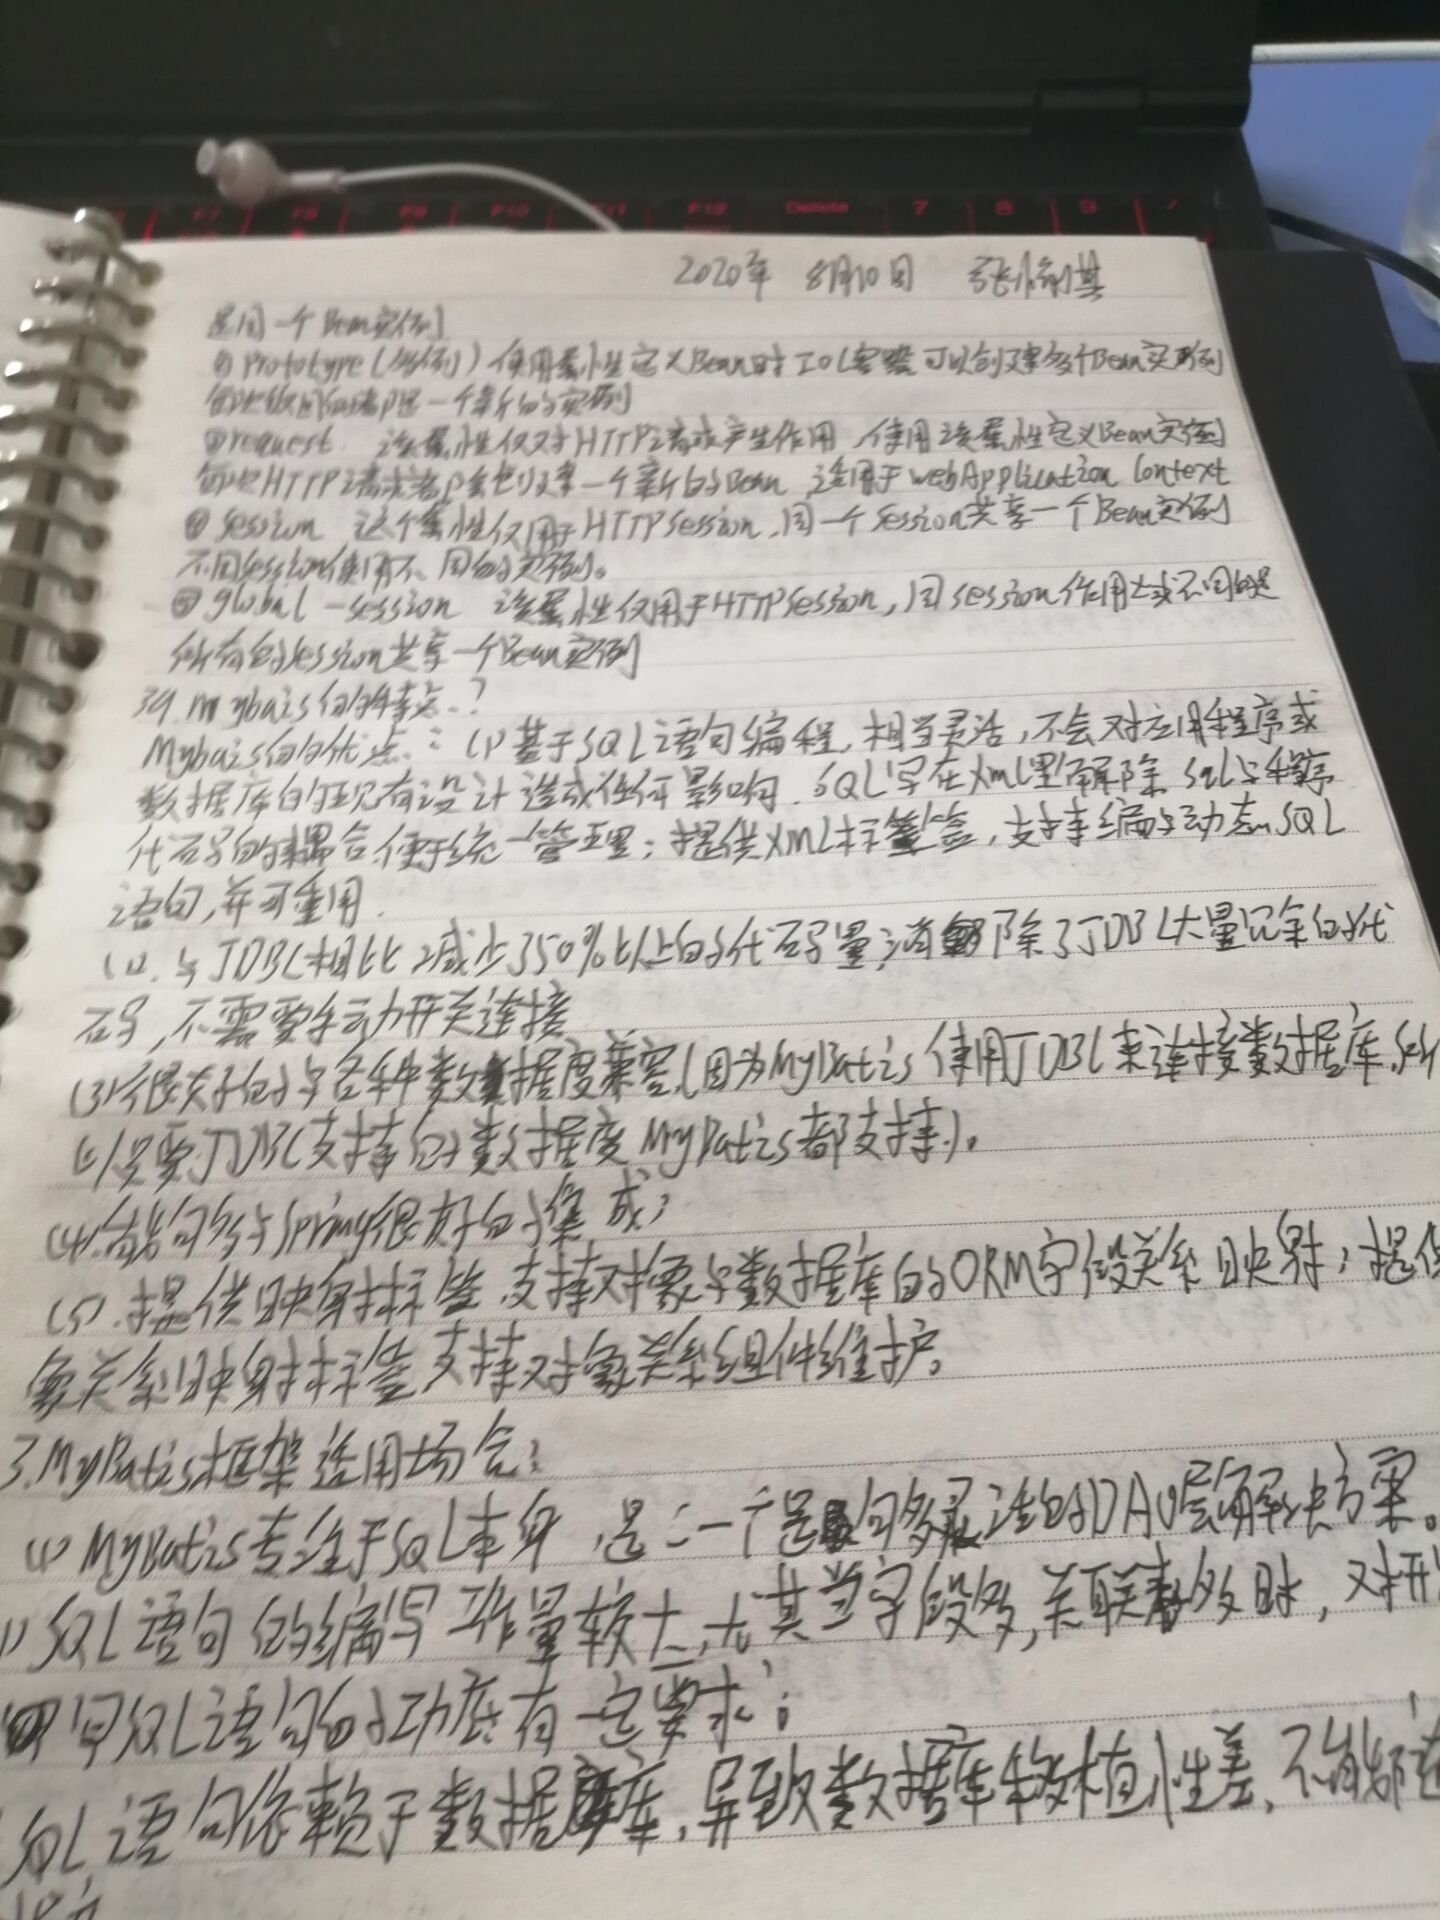 F7 F8 F9 F10 F11 F12 Delete 7 8 9
2020年 8月10日
是同一个Bean实例
prototype(多例)使用属性定义Bean时IOC容器可以创建多个Bean实例
每次返回的都是一个新的实例
③request 该属性仅对HTTP请求产生作用,使用该属性定义Bean实例
每次HTTP请求都会创建一个新的Bean,适用于webApplication Context
④session 这个属性仅用于HTTPSession,同一个Session共享一个Bean实例
不同Session使用不同的实例。
⑤global-session 该属性仅用于HTTPSession,同session作用域不同的是
所有的session共享一个Bean实例
34.mybais的特点?
Mybais的优点:(1)基于SQL语句编程,相当灵活,不会对应用程序或
数据库的现有设计造成任何影响.SQL写在XML里解除sql与程序
代码的耦合,便于统一管理;提供XML标签,支持编写动态SQL
语句,并可重用.
(2).与JDBC相比减少了50%以上的代码量;消除了JDBC大量冗余的代
码,不需要手动开关连接
(3)很好的与各种数据度兼容(因为MyBatis使用JDBC来连接数据库,所
以只要JDBC支持的数据度MyBatis都支持)。
(4).能够与Spring很好的集成;
(5).提供映射标签,支持对象与数据库的ORM字段关系映射;提供
象关系映射标签,支持对象关系组件维护。
3.MyBatis框架适用场合:
(1)MyBatis专注于SQL本身,是一个足够灵活的DAO层解决方案。
SQL语句的编写工作量较大,尤其当字段多,关联表多时,对开
写SQL语句的功底有一定要求;
SQL语句依赖于数据库,导致数据库移植性差,不能